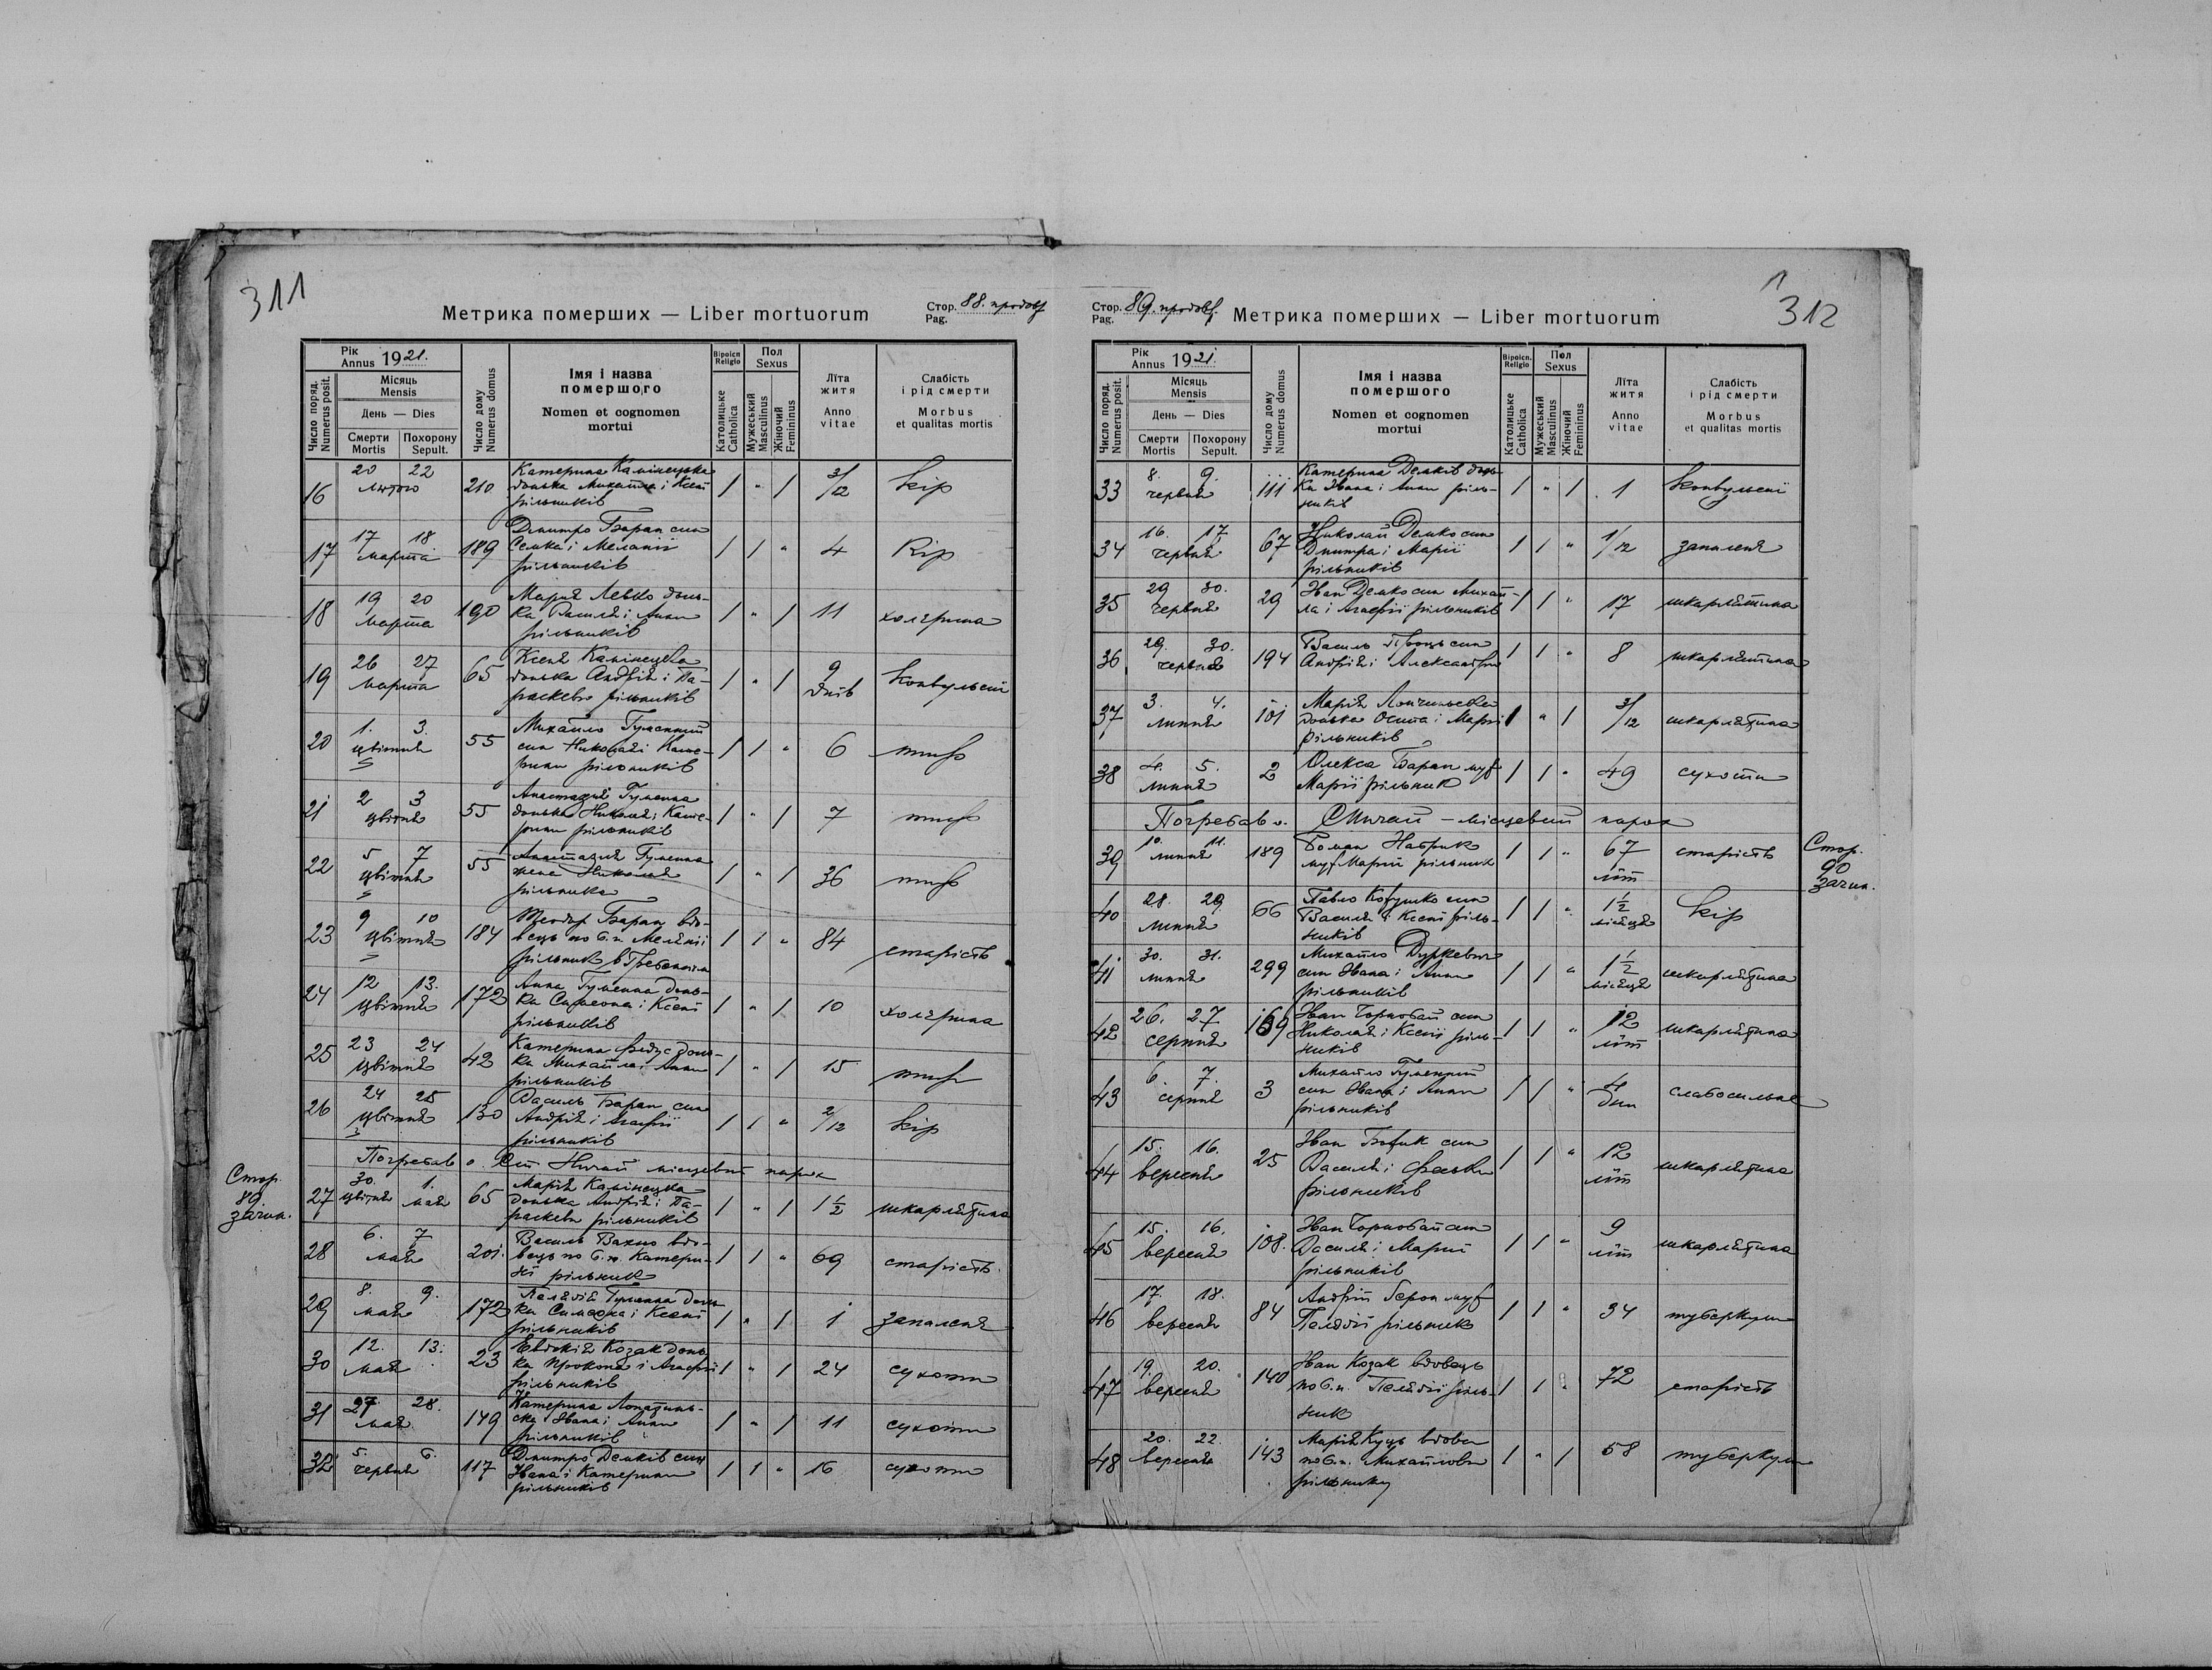 311
Метрика померших — Liber mortuorum
Стор. 88. продовж
Pag.
Рік
Annus 1921.
Число поряд.
Numerus posit.
Місяць
Mensis
День — Dies
Смерти
Mortis
Похорону
Sepult.
Число дому
Numerus domus
Імя і назва
помершого
Nomen et cognomen
mortui
Віроісп.
Religio
Католицьке
Catholica
Пол
Sexus
Мужеський
Masculinus
Жіночий
Femininus
Літа
житя
Anno
vitae
Слабість
і рід смерти
Morbus
et qualitas mortis
16 20 22 лютого 210 Катерина Камінецька
донька Михайла і Ксені
рільників
1 " 1 3/12 кір
17 17 18 марта 189 Дмитро Баран син
Семка і Меланії
рільників
1 1 " 4 кір
18 19 20 марта 190 Марія Левко донь-
ка Василя і Анни
рільників
1 " 1 11 холєрина
19 26 27 марта 65 Ксеня Камінецка
донька Андрія і Па-
раскеви рільників
1 " 1 9 днів конвульсиї
20 1. 3. цвітня 55 Михайло Гуменний
син Николая і Кате-
рини рільників
1 1 " 6 тиф
21 2 3 цвітня 55 Анастазия Гуменна
донька Николая і Кате-
рини рільників
1 " 1 7 тиф
22 5 7 цвітня 55 Анастазия Гуменна
жена Николая
рільника
1 " 1 36 тиф
23 9 10 цвітня 184 Теодор Баран вдо-
вець по б.п. Мелянії
рільник
1 1 " 84 старість
24 12 13. цвітня 172 Анна Гуменна донь-
ка Симеона і Ксені
рільників
1 " 1 10 холєрина
25 23 24 цвітня 42 Катерина Федус донь-
ка Михайла і Анни
рільників
1 " 1 15 тиф
26 24 25 цвітня 130 Василь Баран син
Андрія і Агафії
рільників
1 1 " 2/12 кір
Погребав о. місцевий парох
Стор.
89
зачин.
27 30. цвітня 1. мая 65 Марія Камінецка
донька Андрія і Па-
раскеви рільників
1 " 1 1½ шкарлятина
28 6. 7 мая 201. Василь Вахно вдо-
вець по б.п. Катери-
ні рільник
1 1 " 69 старість.
29 8. 9. мая 172 Пелядія Гуменна донь-
ка Симеона і Ксені
рільників
1 " 1 1 запаленя
30 12. 13. мая 23 Евдокія Козак донь-
ка Прокопа і Агафії
рільників
1 " 1 24 сухоти
31 27 28. мая 149 Катерина Лопатинь-
ска Івана і Анни
рільників
1 " 1 11 сухоти
32 5. 6. червня 117 Дмитро Демків син
Івана і Катерини
рільників
1 1 " 16 сухоти
Стор. 89. продовж.
Pag.
Метрика померших — Liber mortuorum
312
Рік
Annus 1921.
Число поряд.
Numerus posit.
Місяць
Mensis
День — Dies
Смерти
Mortis
Похорону
Sepult.
Число дому
Numerus domus
Імя і назва
помершого
Nomen et cognomen
mortui
Віроісп.
Religio
Католицьке
Catholica
Пол
Sexus
Мужеський
Masculinus
Жіночий
Femininus
Літа
житя
Anno
vitae
Слабість
і рід смерти
Morbus
et qualitas mortis
33 8. 9. червня 111 Катерина Демків донь-
ка Івана і Анни ріль-
ників
1 " 1 1 конвульсиї
34 16. 17. червня 67 Николай Демко син
Дмитра і Марії
рільників
1 1 " 1/12 запаленя
35 29 30. червня 29 Іван Демко син Михай-
ла і Агафії рільників
1 1 " 17 шкарлятина
36 29. 30. червня 194 Василь Процьсин
Андрія і Александри
1 1 " 8 шкарлятина
37 3. 4. липня 101 Марія
донька Осипа і Марії
рільників
1 " 1 3/12 шкарлятина
38 4. 5. липня 2 Олекса Баран муж
Марії рільник
1 1 " 49 сухоти
Погребав о. місцевий парох
39 10. 11. липня 189 Роман Набрик
муж Марії рільник
1 1 " 67 літ старість
Стор.
90
зачин.
40 28. 29. липня 66 Павло Кожушко син
Василя і Ксені ріль-
ників
1 1 " 1½ місяця кір
41 30. 31. липня 299 Михайло Дуркевич
син Івана і Анни
рільників
1 1 " 1½ місяця шкарлятина
42 26. 27 серпня 169 Іван Чорнобай син
Николая і Ксенії ріль-
ників
1 1 " 12 літ шкарлятина
43 6. 7. серпня 3 Михайло Гуменний
син Івана і Анни
рільників
1 1 " 4 дни слабосильнє
44 15. 16. вересня 25 Іван син
Василя і Феськи
рільників
1 1 " 12 літ шкарлятина
45 15. 16. вересня 108. Іван Чорнобай син
Василя і Марії
рільників
1 1 " 9 літ шкарлятина
46 17. 18. вересня 84 Андрій Герон муж
Пелядії рільник
1 1 " 34 туберкули
47 19. 20. вересня 140 Іван Козак вдовець
по б.п. Пелядії ріль-
ник
1 1 " 72 старість
48 20. 22. вересня 143 Марія Куць вдова
по б.п. Михайлови
рільнику
1 " 1 58 туберкули